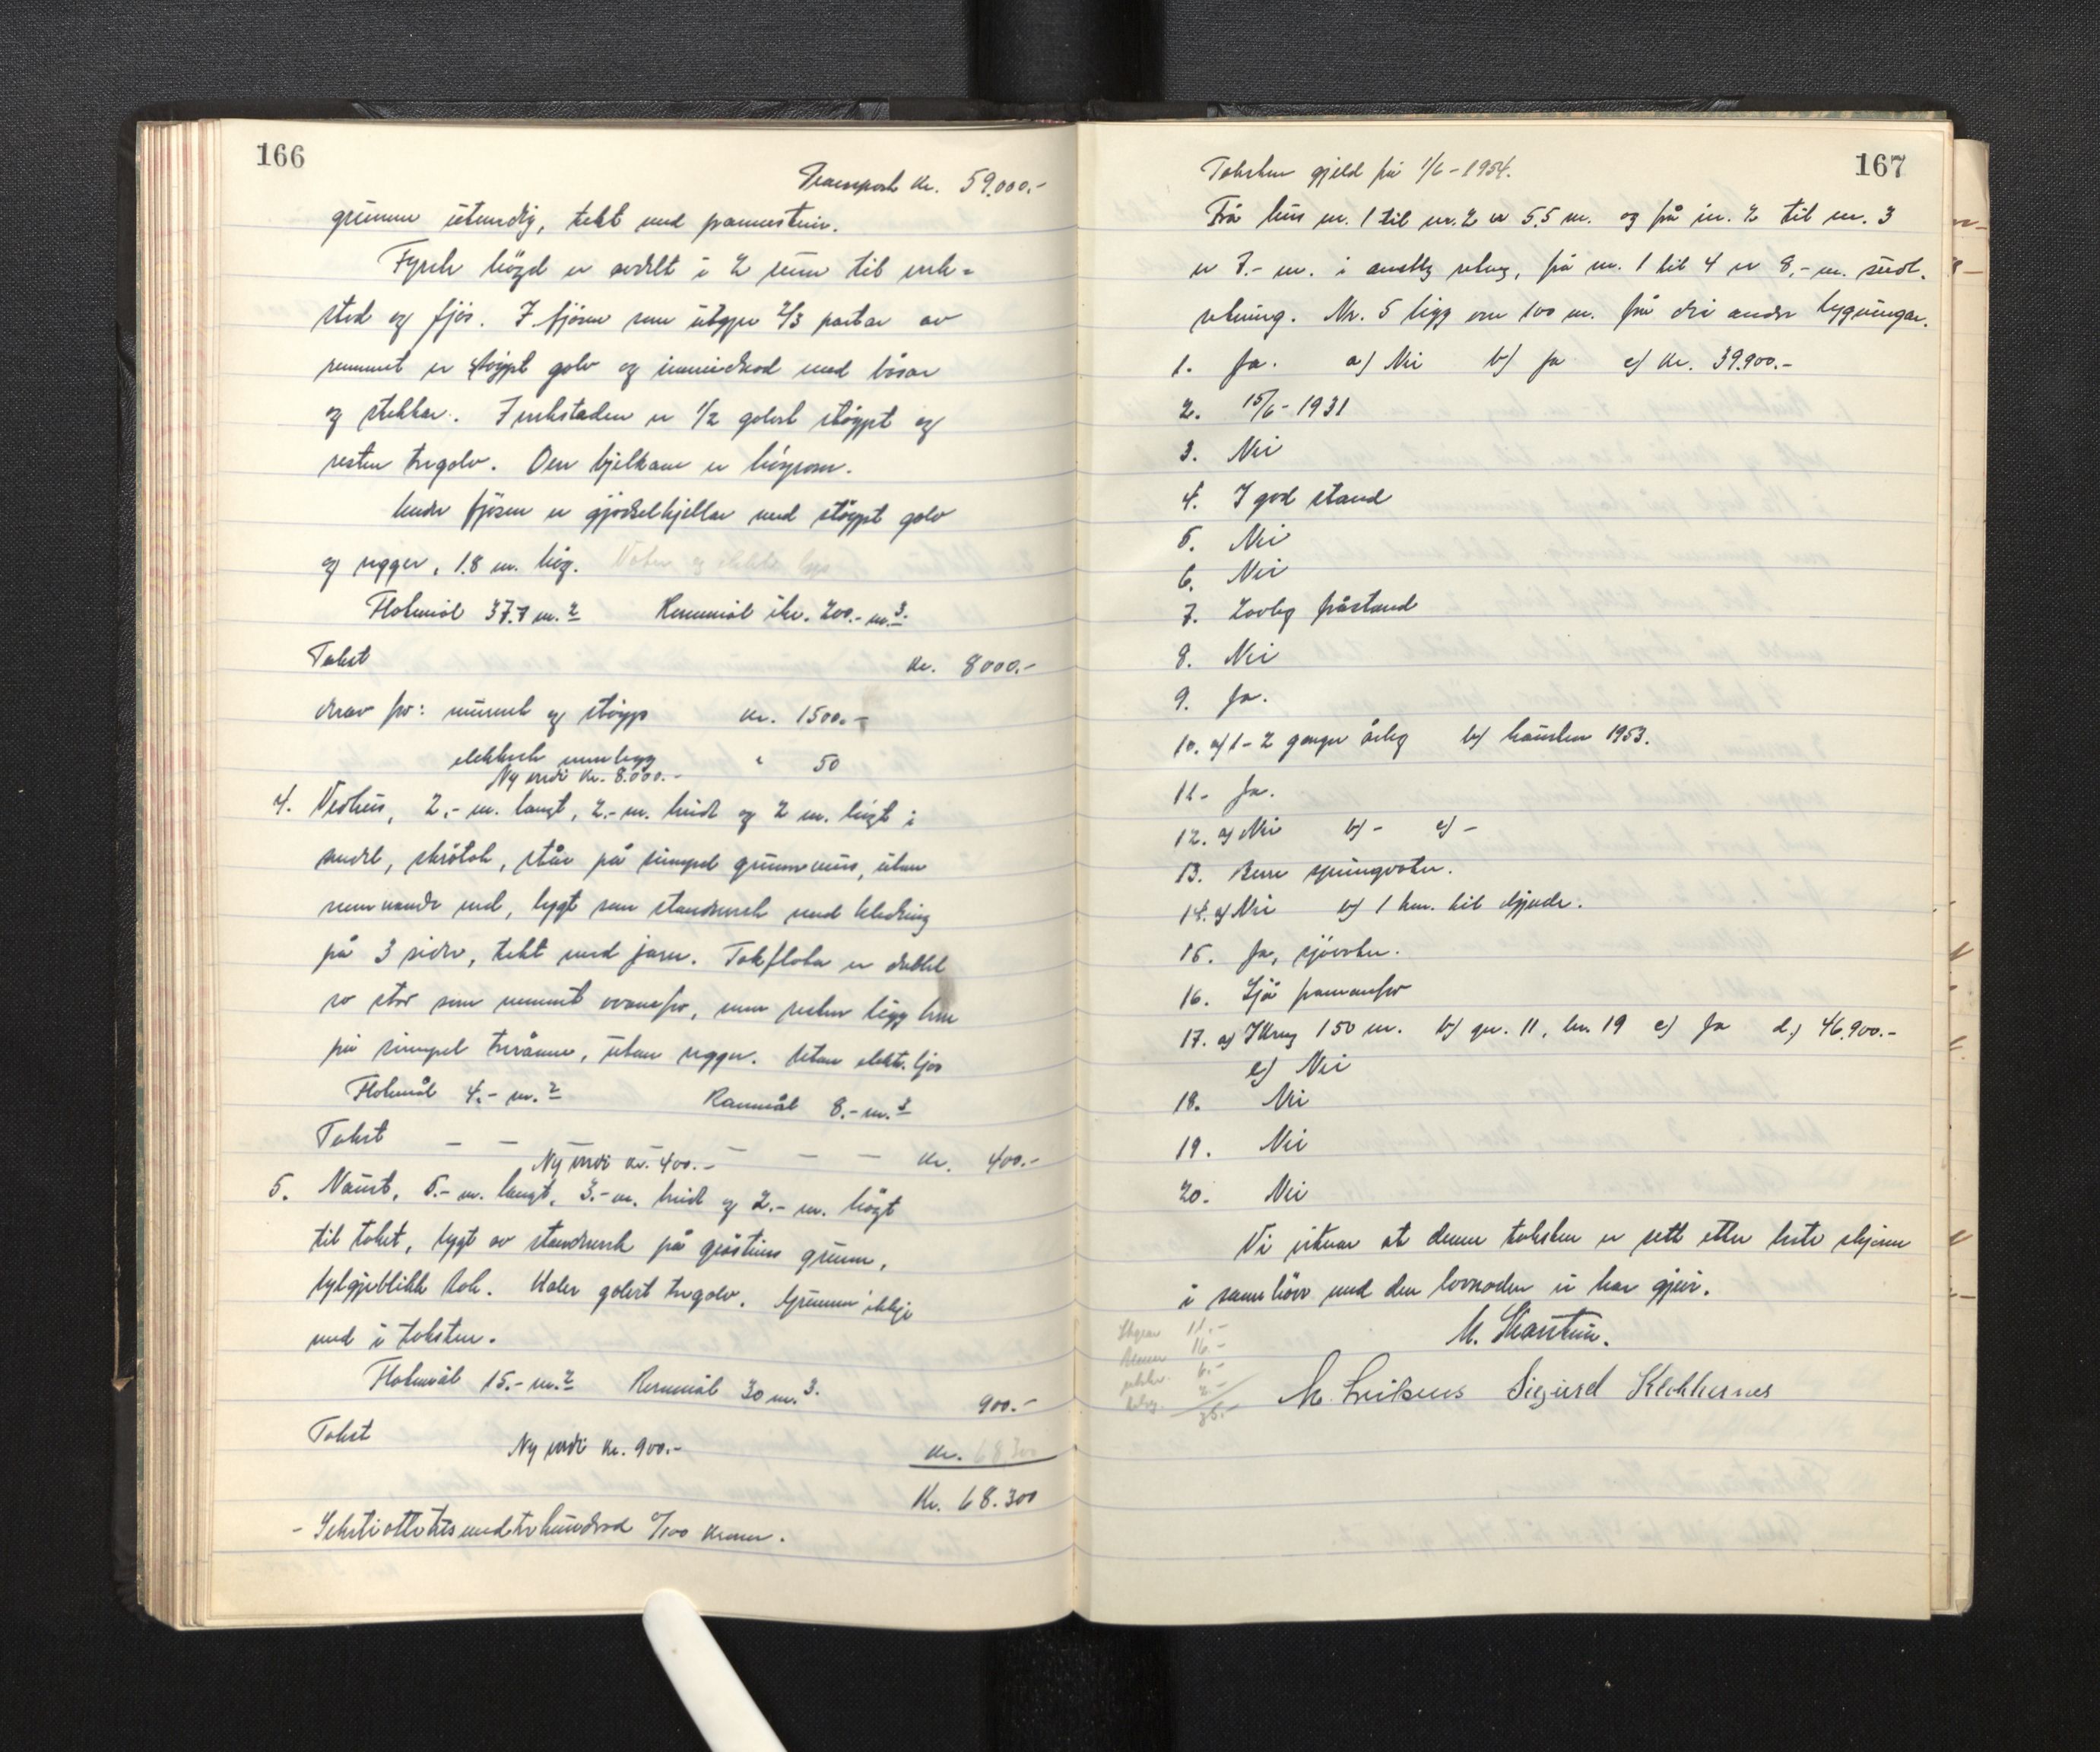 166
Transport kr. 59.000.-
grunn utvendig, tekt med pannestein.
Fyrste högd er avdelt i 2 rum til vek-
stad og fjös. I fjösen som utgjer 2/3 partar av
rummet er stöypt golv og innreidnad med båsar
og stekkar. I vekstaden er 1/2 golvet stöypt og
resten tregolv. Over bjelkane er höyrom.
Under fjösen er gjödselkjellar med stöypt golv
og vegger, 1.8 m. hög. Vatn og elektr. lys
Flatemål 37.7 m.2 Rummål ikr. 200.- m.3.
Takst kr. 8000.-
derav for: murverk og stöyp kr. 1500.-
elektrisk innlegg " 50
Ny verdi kr. 8.000.-
4. Vedhus, 2.- m. langt, 2.- m. breidt og 2 m. högt i
snedet, skråtak, står på simpel grunnmur, utan
rumvande ved, bygt som standverk med kledning
på 3 sider, tekt med jarn. Takflata er dobbel
so stor som rummet ovanfor, men resten ligg berre
på simpel treråme, utan vegger. Utan elektr. ljos
Flatemål 4.- m.2 Rummål 8.- m.3
Takst - - - - - - kr. 400.-
Ny verdi kr. 400.-
5. Naust, 5.- m. langt, 3.- m. breidt og 2.- m. högt
til taket, bygt av standverk på gråsteins grunn,
bylgjeblikk tak. Halve golvet tregolv. Grunnen ikkje
med i taksten.
Flatemål 15.- m.2 Rummål 30 m.3.
Takst 900.-
Ny verdi kr. 900.- kr. 68300
Kr. 68.300
- Sekstiåttetusendtrehundrad 0/100 kroner.
167
Taksten gjeld frå 1/6-1954.
Frå hus nr. 1 til nr. 2 er 5.5 m. og frå nr. 2 til nr. 3
er 7.- m. i austleg retning, frå nr. 1 til 4 er 8,- m. sudl.
retning. Nr. 5 ligg om 100 m. frå dei andre bygningar.
1. Ja. a) Nei b) Ja c) Kr. 39.900.-
2. 15/6-1931
3. Nei
4. I god stand
5. Nei
6. Nei
7. Lovleg fråstand
8. Nei
9. Ja.
10. a) 1-2 gonger årleg b) hausten 1953.
11. Ja.
12. a) Nei b) - c) -
13. Berre springvatn.
14. a) Nei b) 1 km. til
15. Ja, sjövatn.
16. Sjå framanfor
17. a) Ikring 150 m. b) gn. 11, bn. 19 c) Ja d.) 46.900.-
e) Nei
18. Nei
19. Nei
20. Nei
Vi vitnar at denne taksten er sett etter beste skjönn
i samhöve med den lovnaden vi har gjeve.
11.-
16.-
6.-
2.-
35.-
M. Skarstein.
M. Eriksen Sigurd Klokkernes